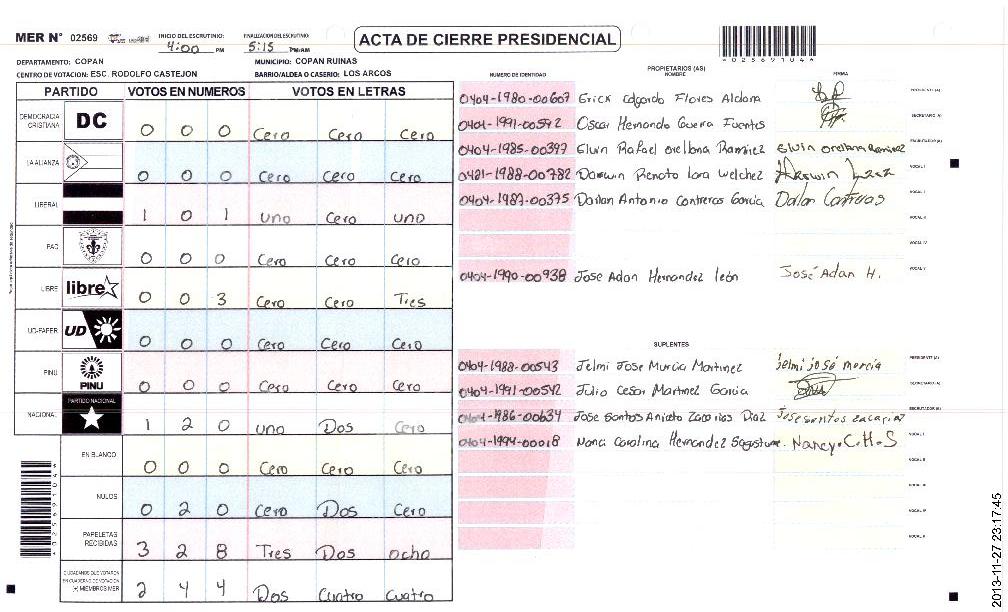 MER N° 02569
INICIO DEL ESCRUTINIO: 4:00 PM
FINALIZACION DEL ESCRUTINIO: 5:15 PM/AM
ACTA DE CIERRE PRESIDENCIAL
4025691044
DEPARTAMENTO: COPAN
MUNICIPIO: COPAN RUINAS
CENTRO DE VOTACION: ESC. RODOLFO CASTEJON
BARRIO/ALDEA O CASERIO: LOS ARCOS
PARTIDO VOTOS EN NUMEROS VOTOS EN LETRAS
DEMOCRACIA CRISTIANA DC 0 0 0 Cero Cero Cero
LA ALIANZA 0 0 0 Cero Cero Cero
LIBERAL 1 0 1 uno Cero uno
PAC 0 0 0 Cero Cero Cero
LIBRE libre 0 0 3 Cero Cero Tres
UD-FAPER UD 0 0 0 Cero Cero Cero
PINU PINU 0 0 0 Cero Cero Cero
NACIONAL PARTIDO NACIONAL 1 2 0 uno Dos Cero
EN BLANCO 0 0 0 Cero Cero Cero
NULOS 0 2 0 Cero Dos Cero
PAPELETAS RECIBIDAS 3 2 8 Tres Dos ocho
CIUDADANOS QUE VOTARON EN CUADERNO DE VOTACION (+) MIEMBROS MER 2 4 4 Dos Cuatro Cuatro
NUMERO DE IDENTIDAD PROPIETARIOS (AS) NOMBRE FIRMA
0404-1980-00607 Erick Edgardo Flores Aldana PRESIDENTE (A)
0404-1991-00592 Oscar Hernando Guerra Fuentes SECRETARIO (A)
0404-1985-00397 Elvin Rafael Orellana Ramirez Elvin orellana Ramirez ESCRUTADOR (A)
0421-1988-00782 Darwin Renato Lara Welchez VOCAL I
0404-1987-00375 Darlan Antonio Contreras Garcia Darlan Contreras VOCAL II
VOCAL III
VOCAL IV
0404-1990-00938 Jose Adan Hernandez león José Adan H. VOCAL V
SUPLENTES
0404-1988-00543 Jelmi Jose Murcia Martinez jelmi josé murcia PRESIDENTE (A)
0404-1991-00542 Julio Cesar Martinez Garcia SECRETARIO (A)
0404-1986-00634 Jose Santos Aniceto Zacarias Diaz Jose santos zacarias ESCRUTADOR (A)
0404-1994-00018 Nanci Carolina Hernandez Sagastume. Nancy.C.H.S VOCAL I
VOCAL II
VOCAL III
VOCAL IV
VOCAL V
4025691044
2013-11-27 23:17:45